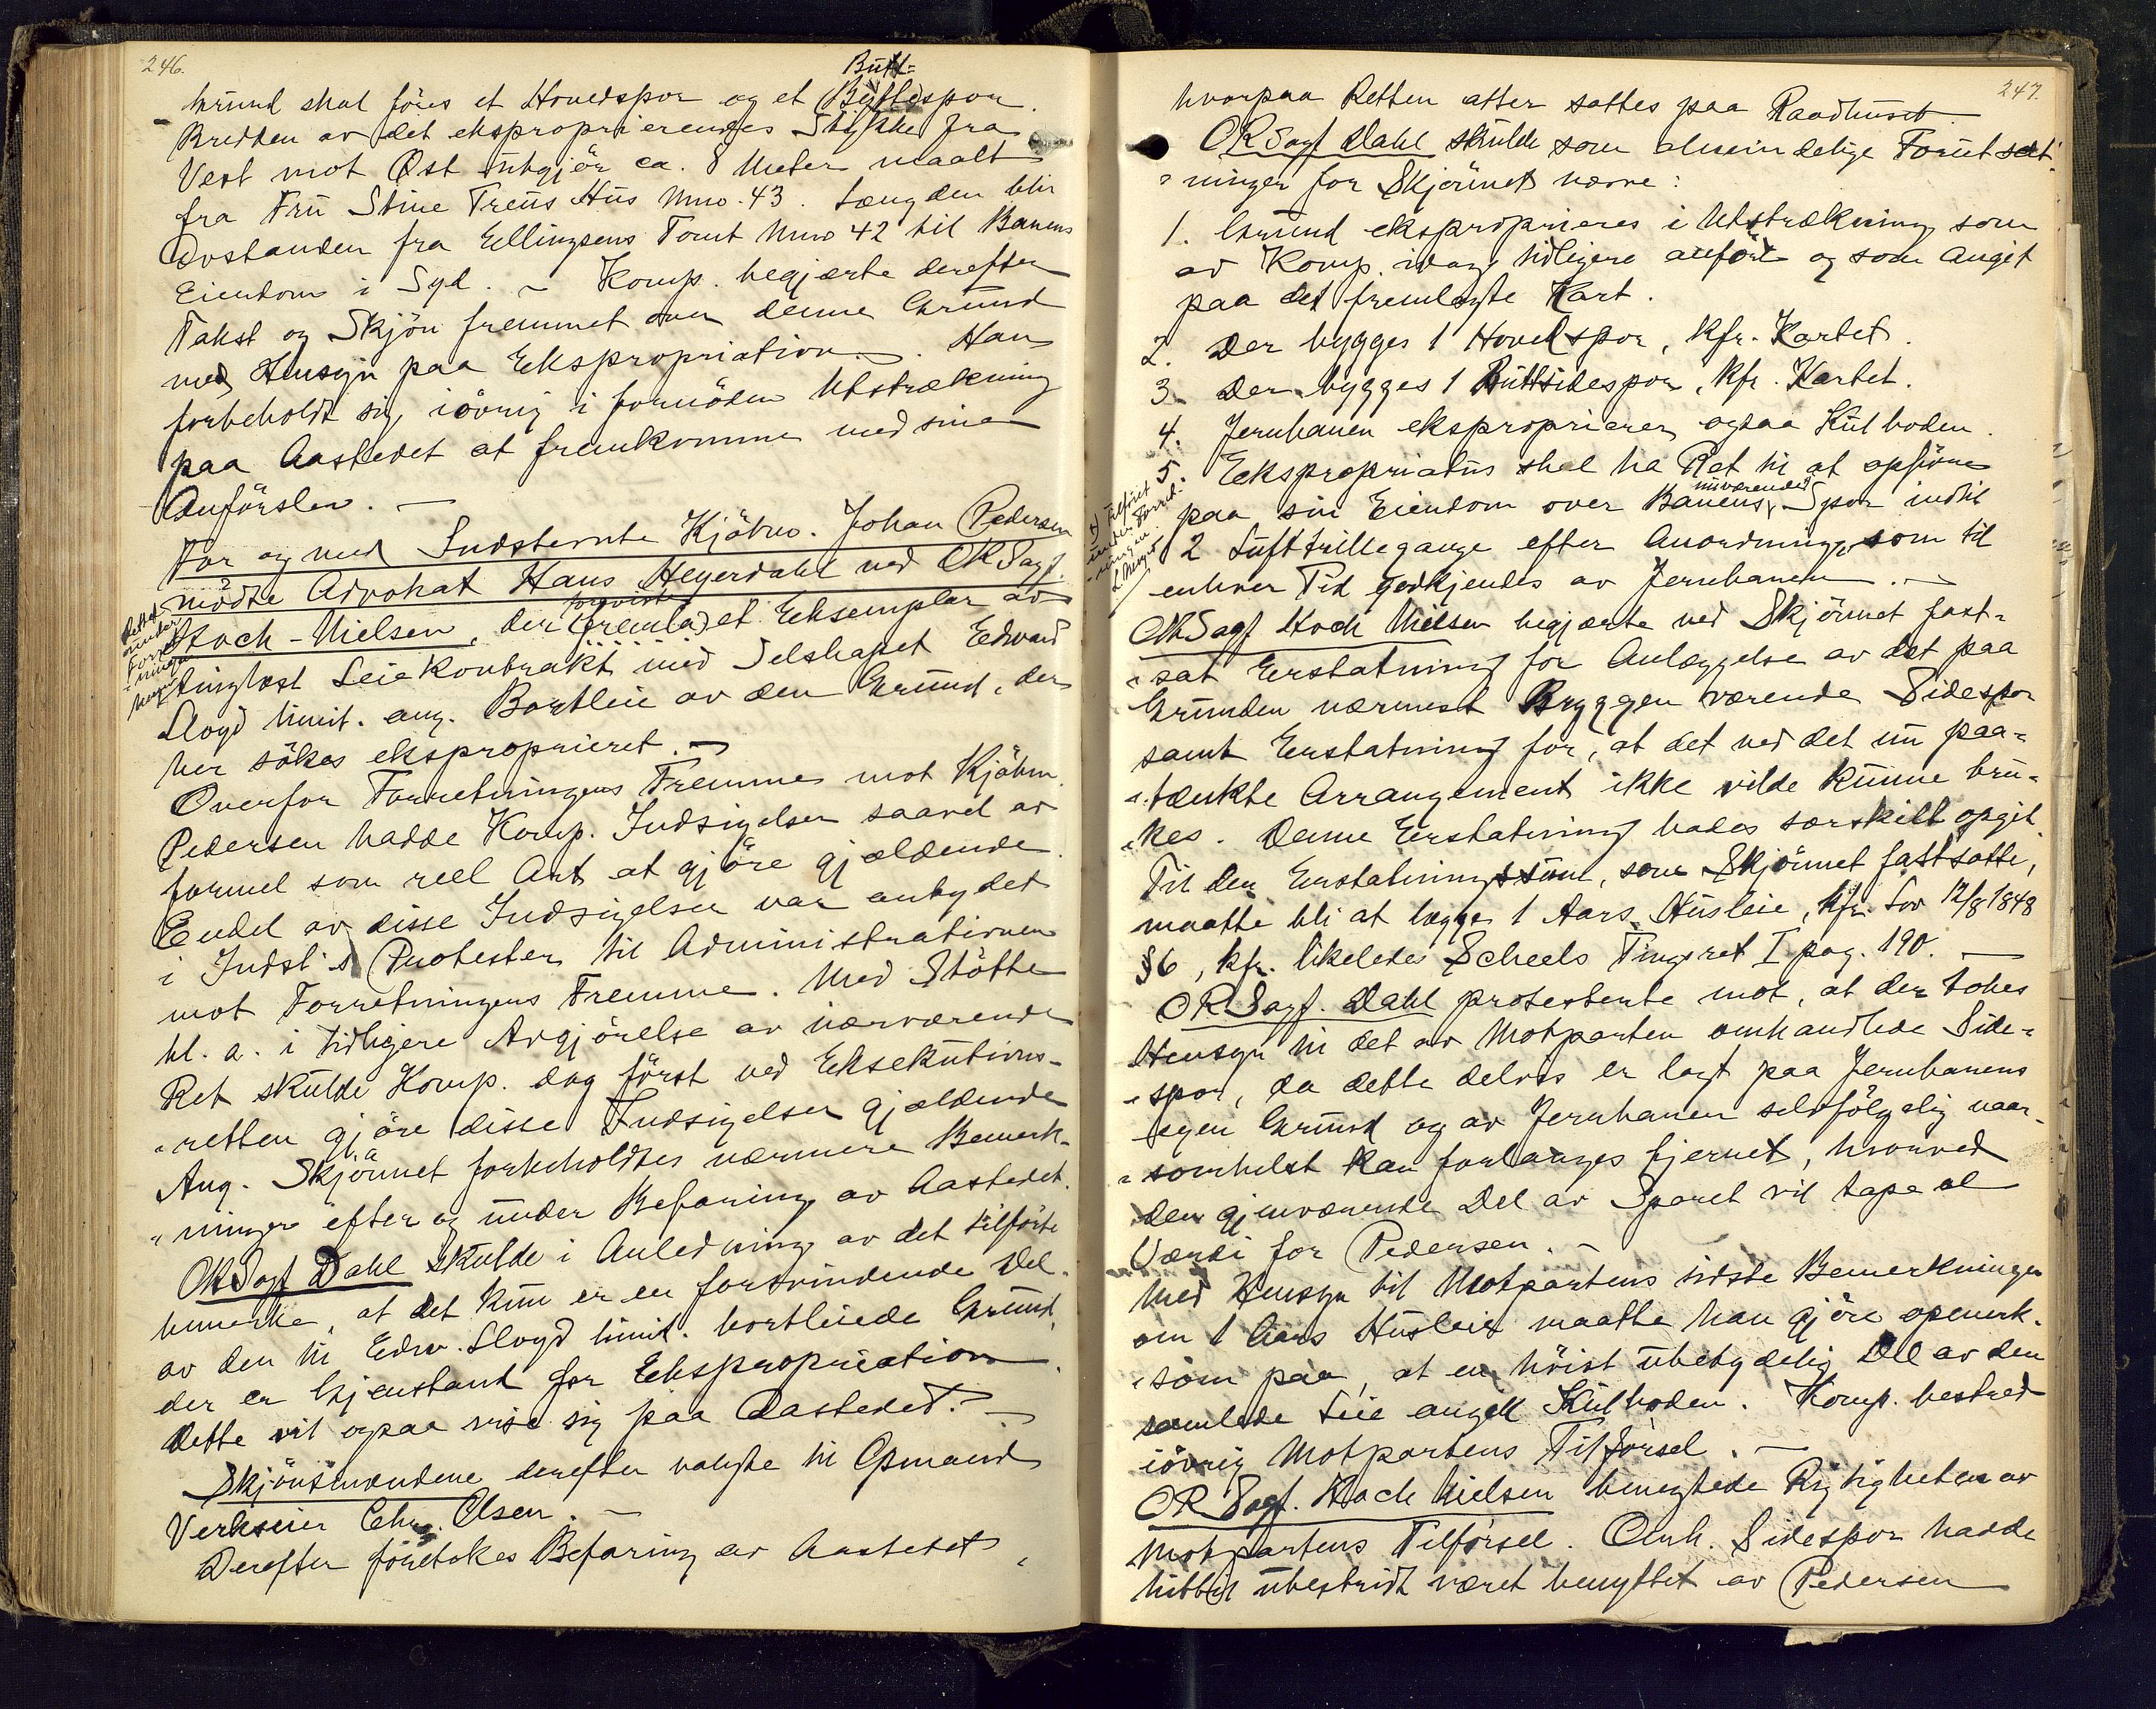 246.
Butt=
Grund skal föres et Hovedspor og et Byttespor.
Bredden av det eksproprierendes Stykke fra
Vest mot Øst utgjör ca. 8 Meter maalt
fra Fru Stine Treus Hus Mno. 43. Længden blir
Avstanden fra Ellingsens Tomt Mno 42 til Banens
Eiendom i Syd. - Komp. begjærte derefter
Takst og Skjön fremmet over denne Grund
med Hensyn paa Ekspropriation. Han
forbeholdt sig iövrig i fornöden Utstrækning
paa Aastedet at fremkomme med sine
Anförsler. -
For og med Indstevnte Kjöbm. Johan Pedersen
mödte Advokat Hans Heyerdahl ved ORSagf.
forviste
Koch-Nielsen, der (fremla) et Eksemplar av
Rettet
under
Forret
ningen
tinglæst Leiekontrakt med Selskapet Edward
Lloyd limit. ang. Bortleie av den Grund, der
her sökes ekspropriert. -
Overfor Forretningens Fremme mot Kjöbm.
Pedersen hadde Komp. Indsigelser saavel av
formel som reel Art at gjöre gjældende.
Endel av disse Indsigelser var antydet
i Indst's Protester til Administrationen
mot Forretningens Fremme. Med Stötte
bl. a. i tidligere Avgjörelse av nærværende
Ret skulde Komp. dog först ved Eksekutions-
"retten gjöre disse Indsigelser gjældende
Ang. Skjönnet forbeholdtes nærmere Bemerk-
"ninger efter og under Befaring av Aastedet.
ORSagf Dahl skulde i Anledning av det tilförte
bemerke, at det kun er en forsvindende Del
av den til Edw. Lloyd limit. bortleiede Grund,
der er Gjenstand for Ekspropriation.
Dette vil ogsaa vise sig paa Aastedet. -
Skjönsmændene derefter valgte til Opmand
Verkseier Chr. Olsen. -
Derefter foretokes Befaring av Aastedet,
247.
hvorpaa Retten atter sattes paa Raadhuset.
ORSagf Dahl skulde som almindelige Forutsæt-
"ninger for Skjönnet nævne:
1. Grund eksproprieres i Utstrækning som
av Komp. idag tidligere anfört og som angit
paa det fremlagte Kart.
2. Der bygges 1 Hovedspor, kfr. Kartet.
3. Der bygges 1 Buttsidespor, kfr. Kartet.
4. Jernbanen eksproprierer ogsaa Kulboden.
5. Ekspropriatus skal ha Ret til at opföre
nuværende
paa sin Eiendom over Banens Spor indtil
tilföiet
under Forret-
ningen
2 Lufttrillegange efter Anordning, som til
enhver Tid godkjendes av Jernbanen. -
ORSagf Koch Nielsen begjærte ved Skjönnet fast-
"sat Erstatning for Anlæggelse av det paa
Grunden nærmest Bryggen værende Sidespor
samt Erstatning for, at det ved det nu paa-
"tænkte Arrangement ikke vilde kunne bru-
"kes. Denne Erstatning hades særskilt opgit.
Til den Erstatningssum, som Skjönnet fastsatte,
maatte bli at lægge 1 Aars Husleie, kfr. Lov 12/8 1848
§6, kfr. likeledes Scheels Tingsret I pag. 190. -
ORSagf. Dahl protesterte mot, at der tokes
Hensyn til det av Motparten omhandlede Side-
"spor, da dette delvis er lagt paa Jernbanens
egen Grund og av Jernbanen selvfölgelig naar-
"somhelst kan forlanges fjernet, hvorved
den gjenværende Del av Sporet vil tape al
Værdi for Pedersen. -
Med Hensyn til Motpartens sidste Bemerkninger
om 1 Aars Husleie maatte han gjöre opmerk-
"som paa, at en höist ubetydelig Del av den
samlede Leie angik Kulboden. Komp. bestred
iövrig Motpartens Tilförsel. -
ORSagf. Koch Nielsen benegtede Rigtigheten av
Motpartens Tilförsel. Omh. Sidespor hadde
hittil ubestridt været benyttet av Pedersen